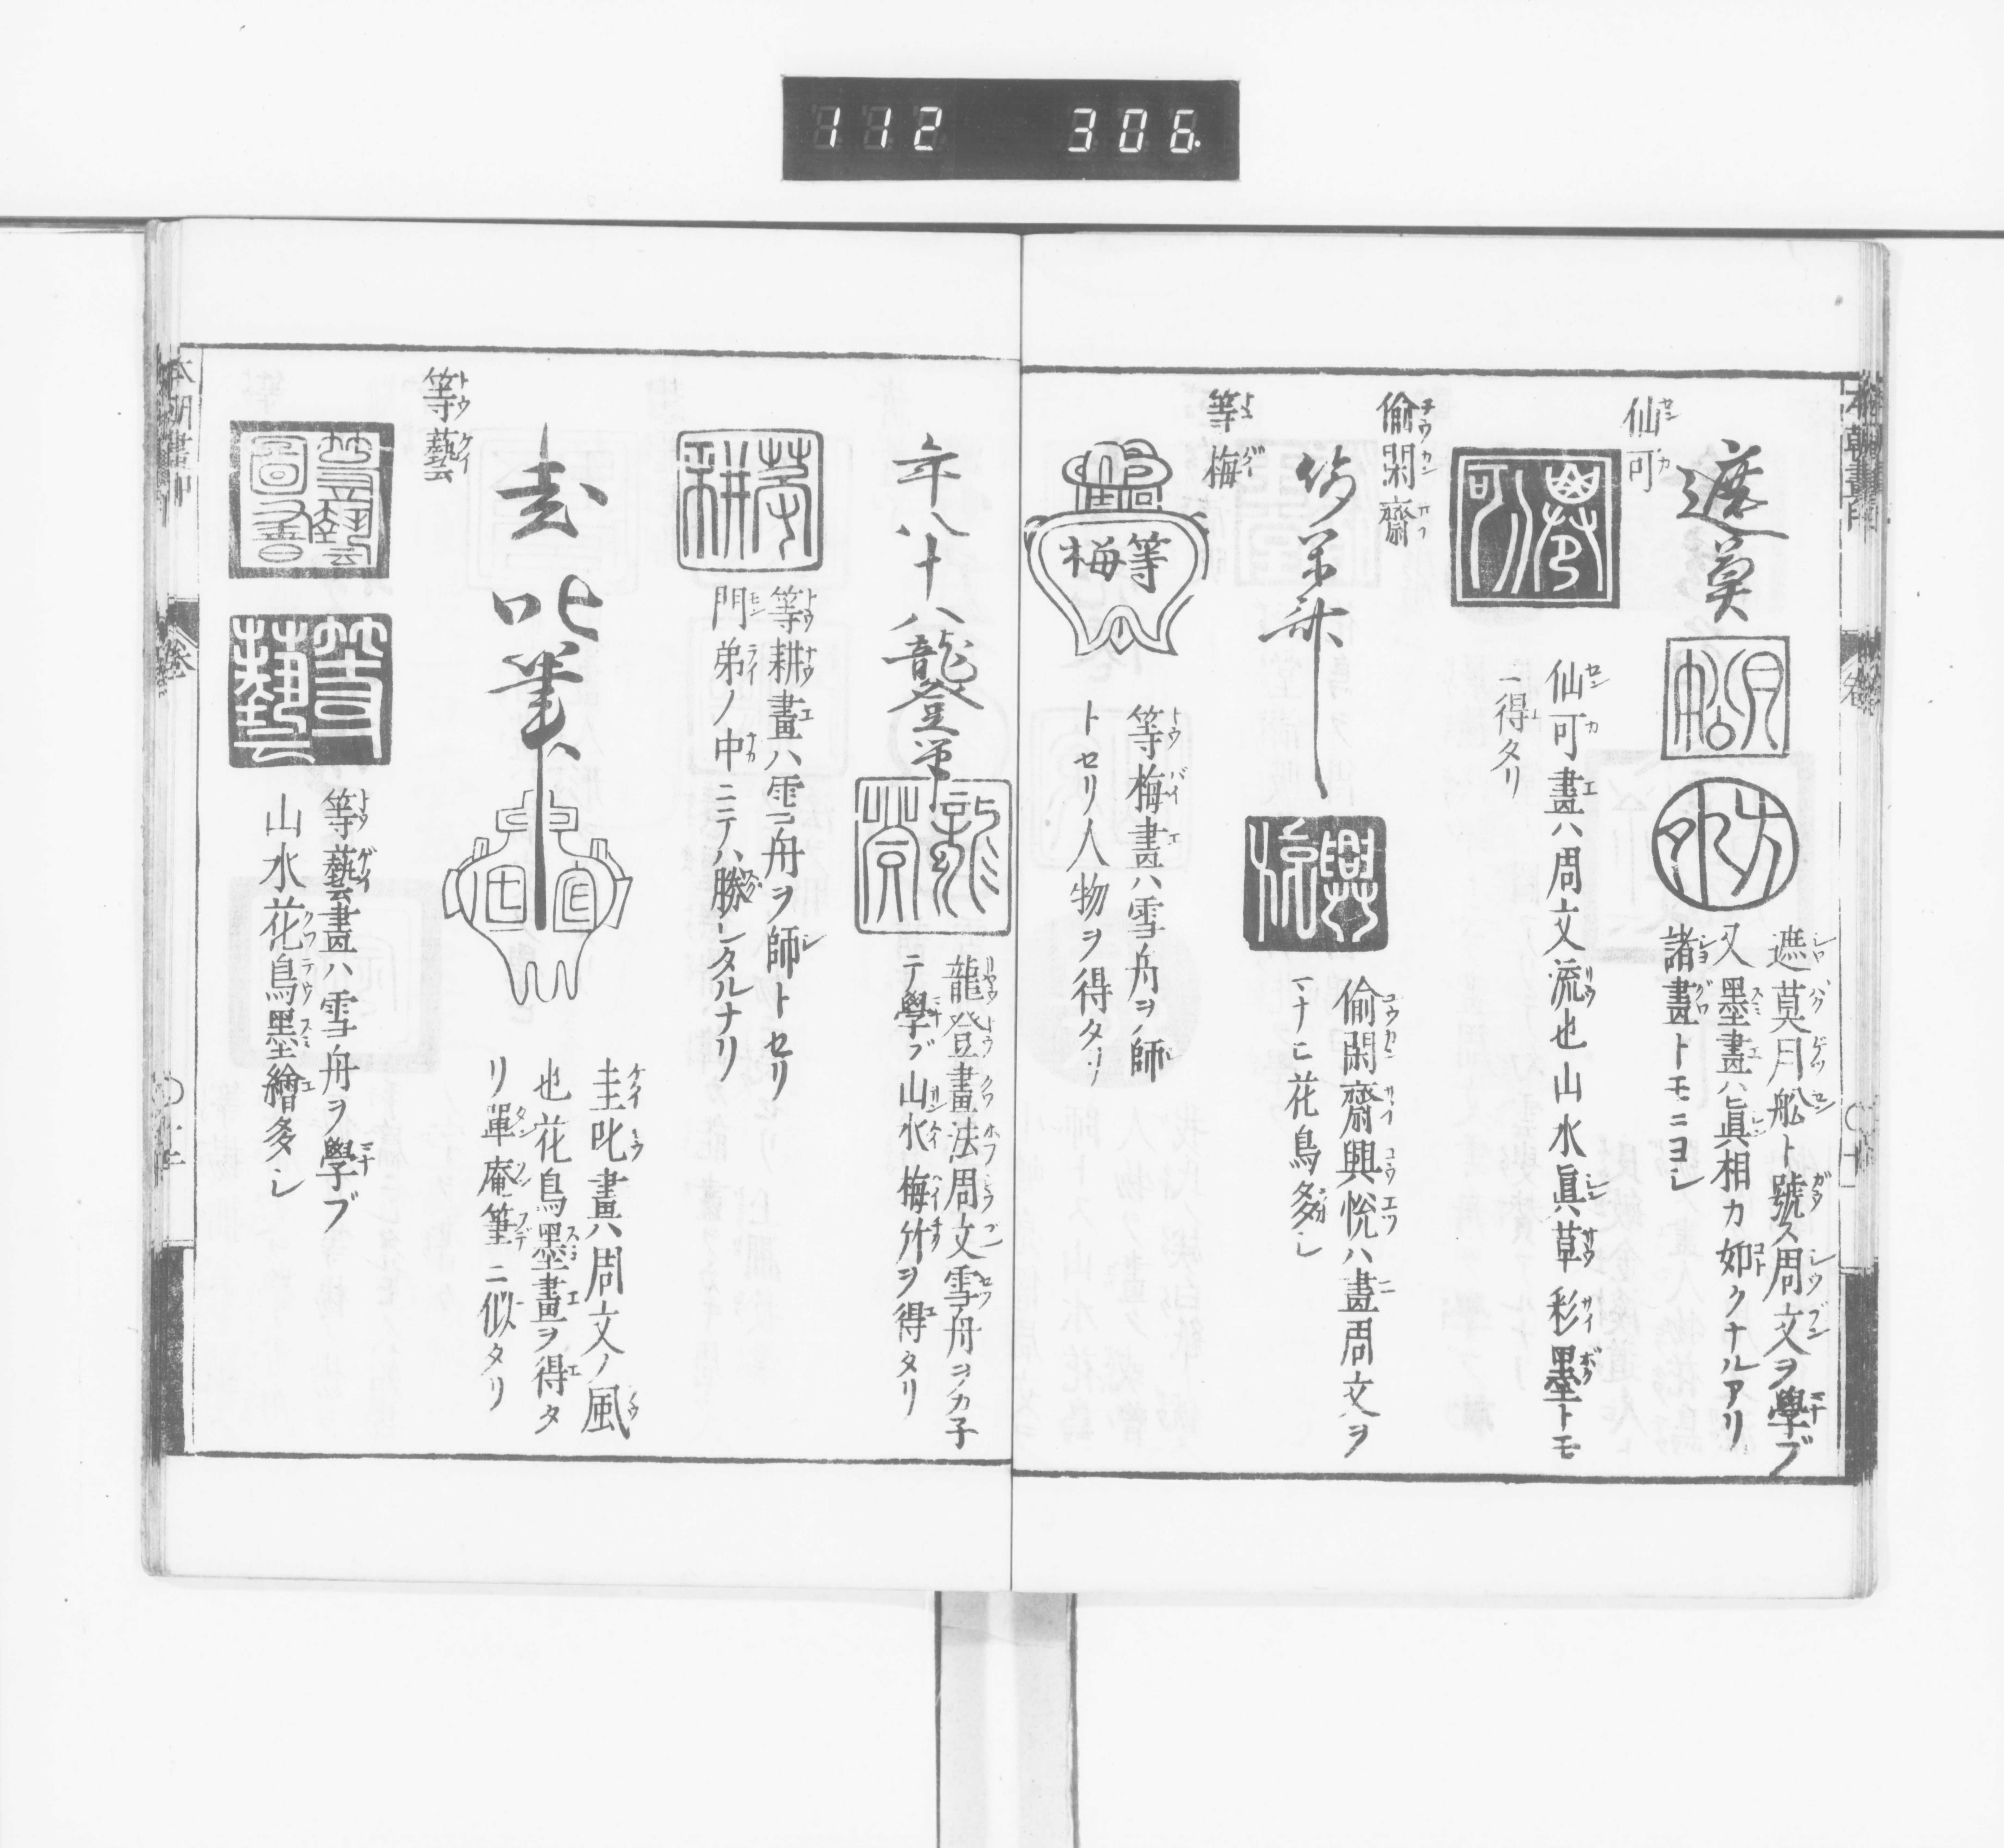 112 306
遮莫
遮莫月舩ト號ス周文ヲ學ブ
又墨畫ハ眞相カ如クナルアリ
諸畫トモニヨシ
仙可
仙可畫ハ周文流也山水眞草彩墨トモ
ニ得タリ
偷閑齋
偷閑齋興悦ハ畫周文ヲ
花鳥多シ
等梅
等梅
等梅畫ハ雪舟ヲ師
トセリ人物ヲ得タリ
年八十八龍登筆
龍登畫法周文雪舟ヲカ子
テ學ブ山水梅竹ヲ得タリ
等耕畫ハ雪舟ヲ師トセリ
門弟ノ中ニテハ勝レタルナリ
圭叱筆
圭叱畫ハ周文ノ風
也花鳥墨畫ヲ得タ
リ單庵筆ニ似タリ
等藝
等藝
等藝畫ハ雪舟ヲ學ブ
山水花鳥墨繪多シ
本朝畫印